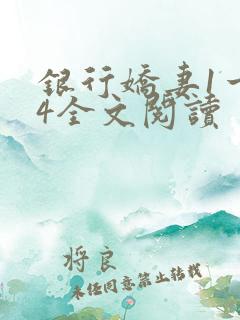 銀行嬌妻1一
4全文閱讀
将良
未经同意禁止转载